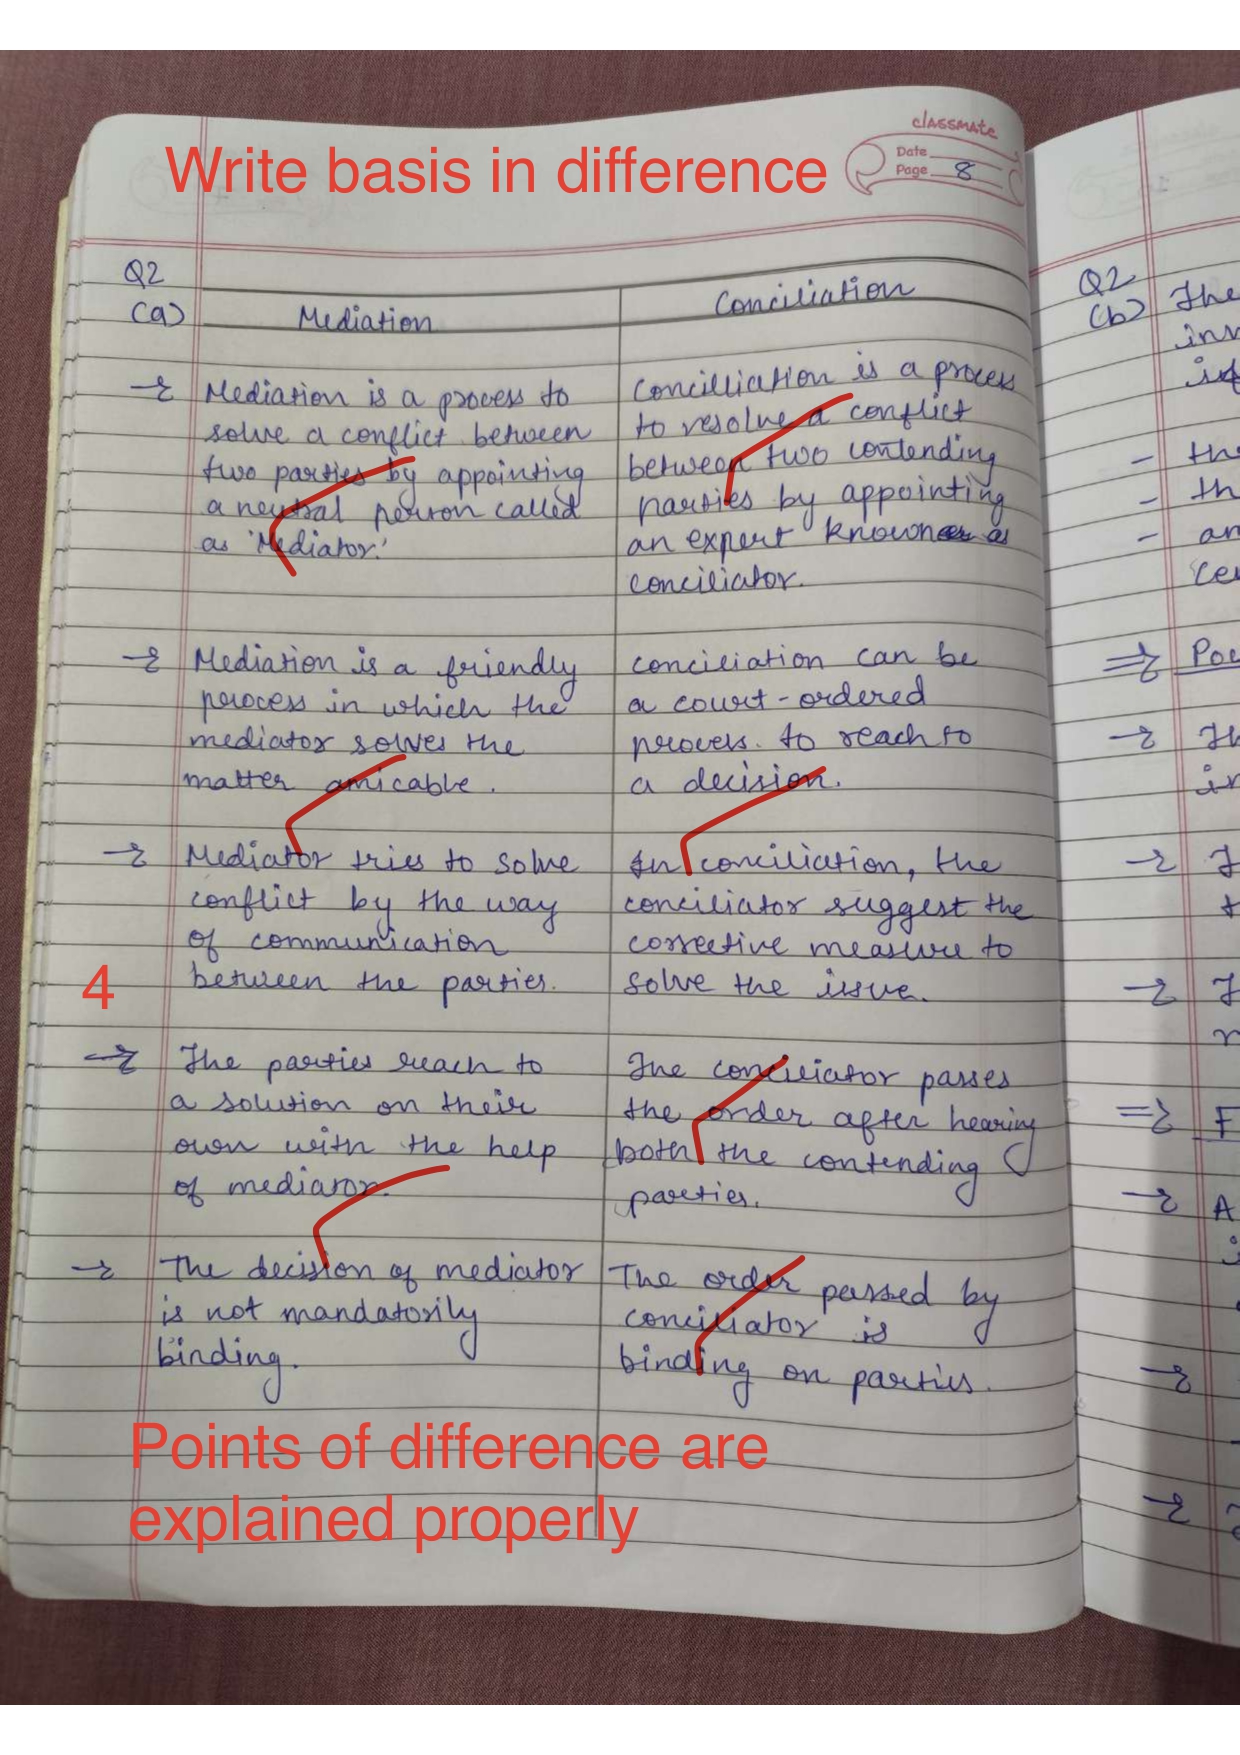 classmate
Date
Page 8
Write basis in difference
Q2
(a) Mediation Conciliation
Mediation is a process to
solve a conflict between
two parties by appointing
a neutral person called
as 'Mediator.'
Concilliation is a process
to resolve a conflict
between two contending
parties by appointing
an expert known as
conciliator.
Mediation is a friendly
process in which the
mediator solves the
matter amicable.
conciliation can be
a court-ordered
process. to reach to
a decision.
Mediator tries to solve
conflict by the way
of communication
between the parties.
In conciliation, the
conciliator suggest the
corrective measure to
solve the issue.
4
The parties reach to
a solution on their
own with the help
of mediator.
The conciliator passes
the order after hearing
both the contending
parties.
The decision of mediator
is not mandatorily
binding.
The order passed by
conciliator is
binding on parties.
Points of difference are
explained properly
Q2
(b) The